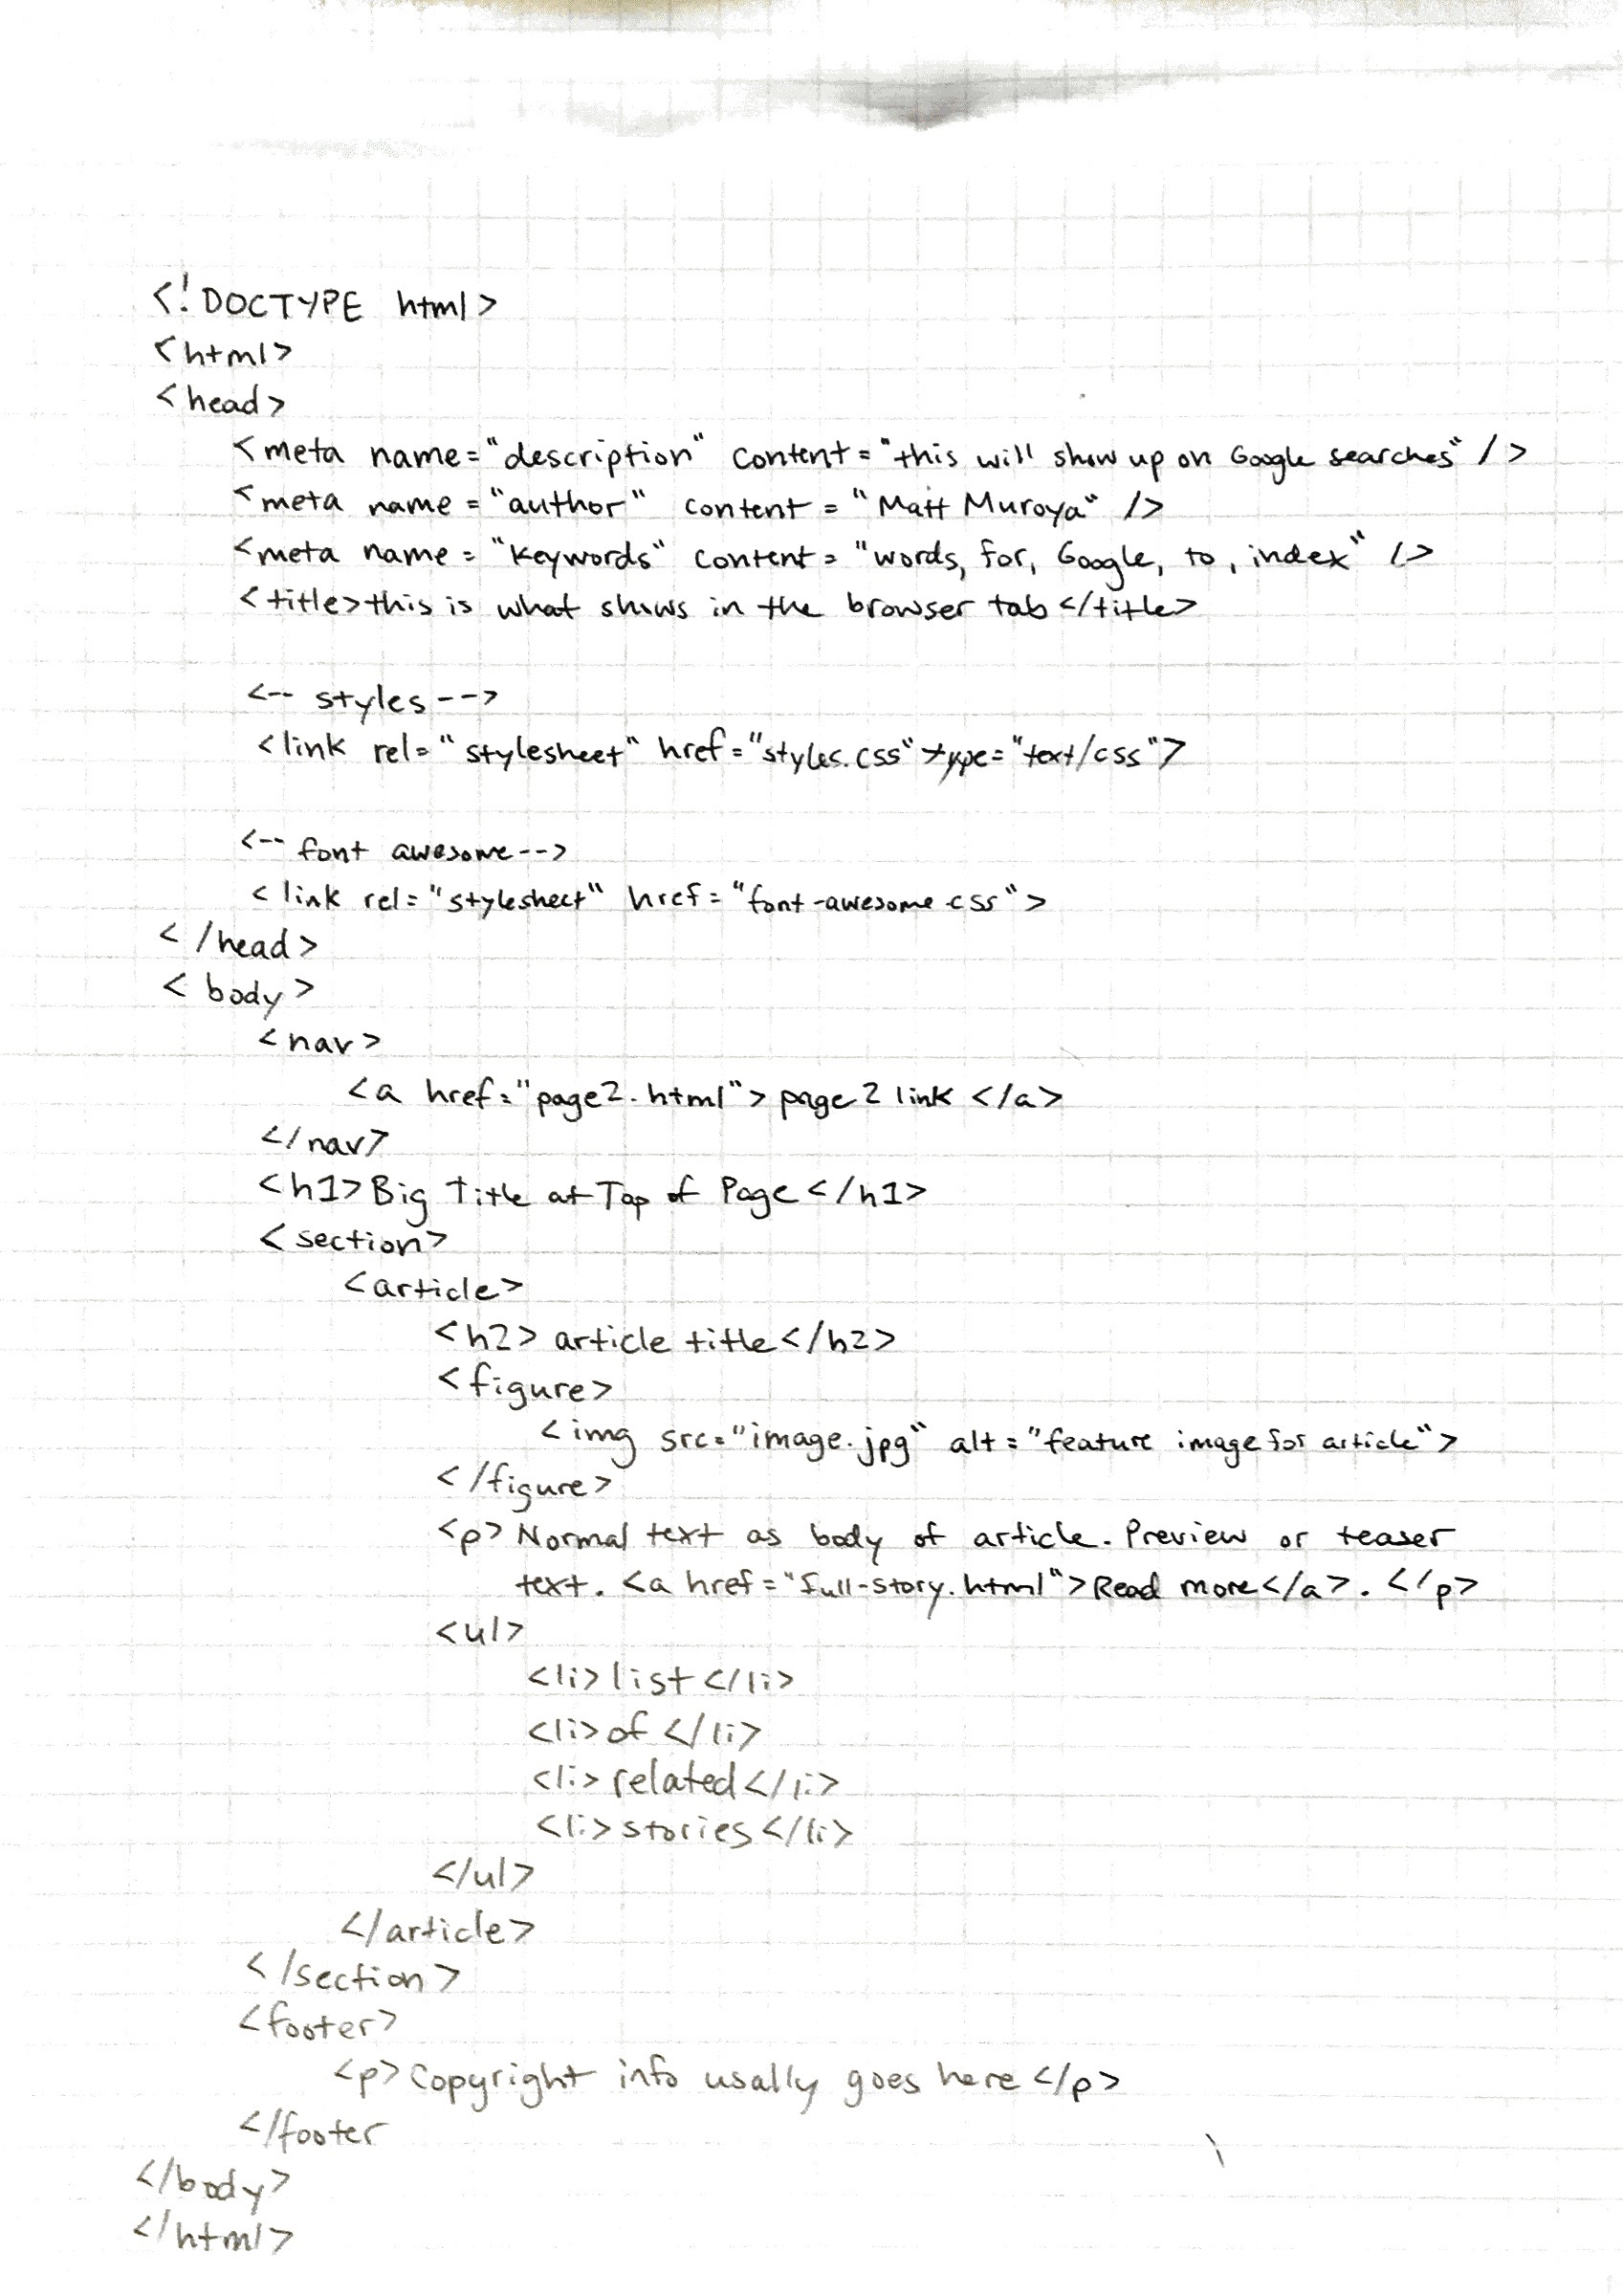 <!DOCTYPE html>
<html>
<head>
<meta name="description" content="this will show up on Google searches" />
<meta name="author" content="Matt Muroya" />
<meta name="keywords" content="words, for, Google, to, index" />
<title>this is what shows in the browser tab</title>
<-- styles -->
<link rel="stylesheet" href="styles.css" type="text/css">
<-- font awesome-->
<link rel="stylesheet" href="font-awesome.css">
</head>
<body>
<nav>
<a href="page2.html">page 2 link </a>
</nav>
<h1>Big Title at Top of Page</h1>
<section>
<article>
<h2> article title</h2>
<figure>
<img src="image.jpg" alt="feature image for article">
</figure>
<p> Normal text as body of article. Preview or teaser
text. <a href="full-story.html">Read more</a>. </p>
<ul>
<li>list</li>
<li>of</li>
<li>related</li>
<li>stories</li>
</ul>
</article>
</section>
<footer>
<p>Copyright info usally goes here</p>
</footer
</body>
</html>